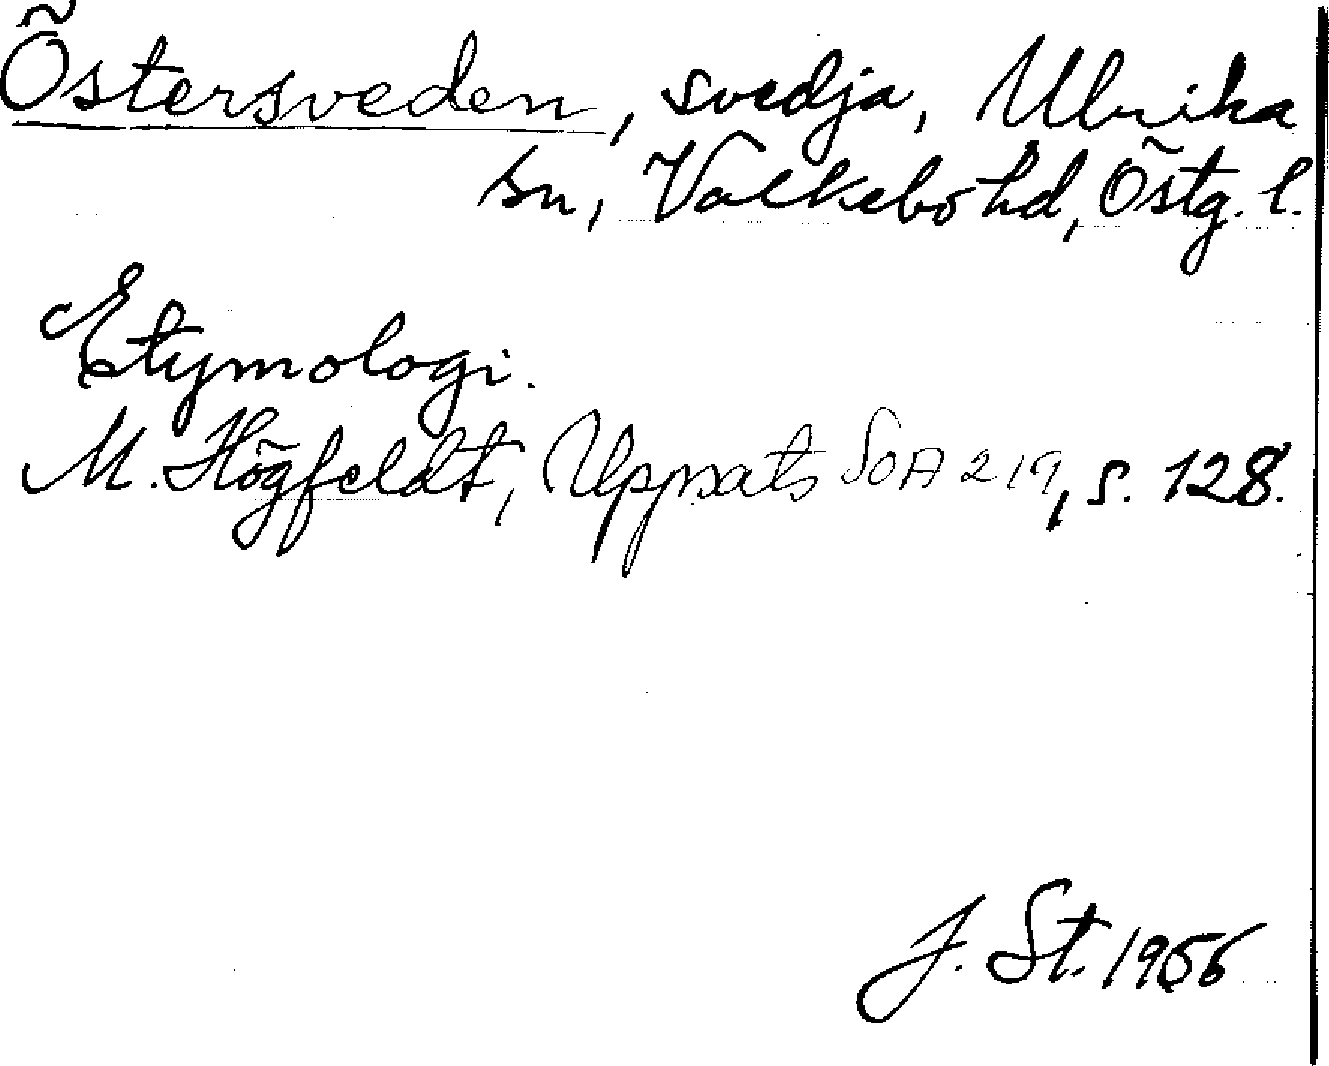 Östersveden, svedja, Ulrika
sn, Valkebo hd, Östg. l.
Etymologi.
M. Högfeldt, Uppsats SOA 219, s. 128.
J. St. 1956